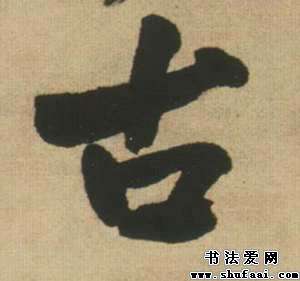 古
书法爱网
www.shufaai.com